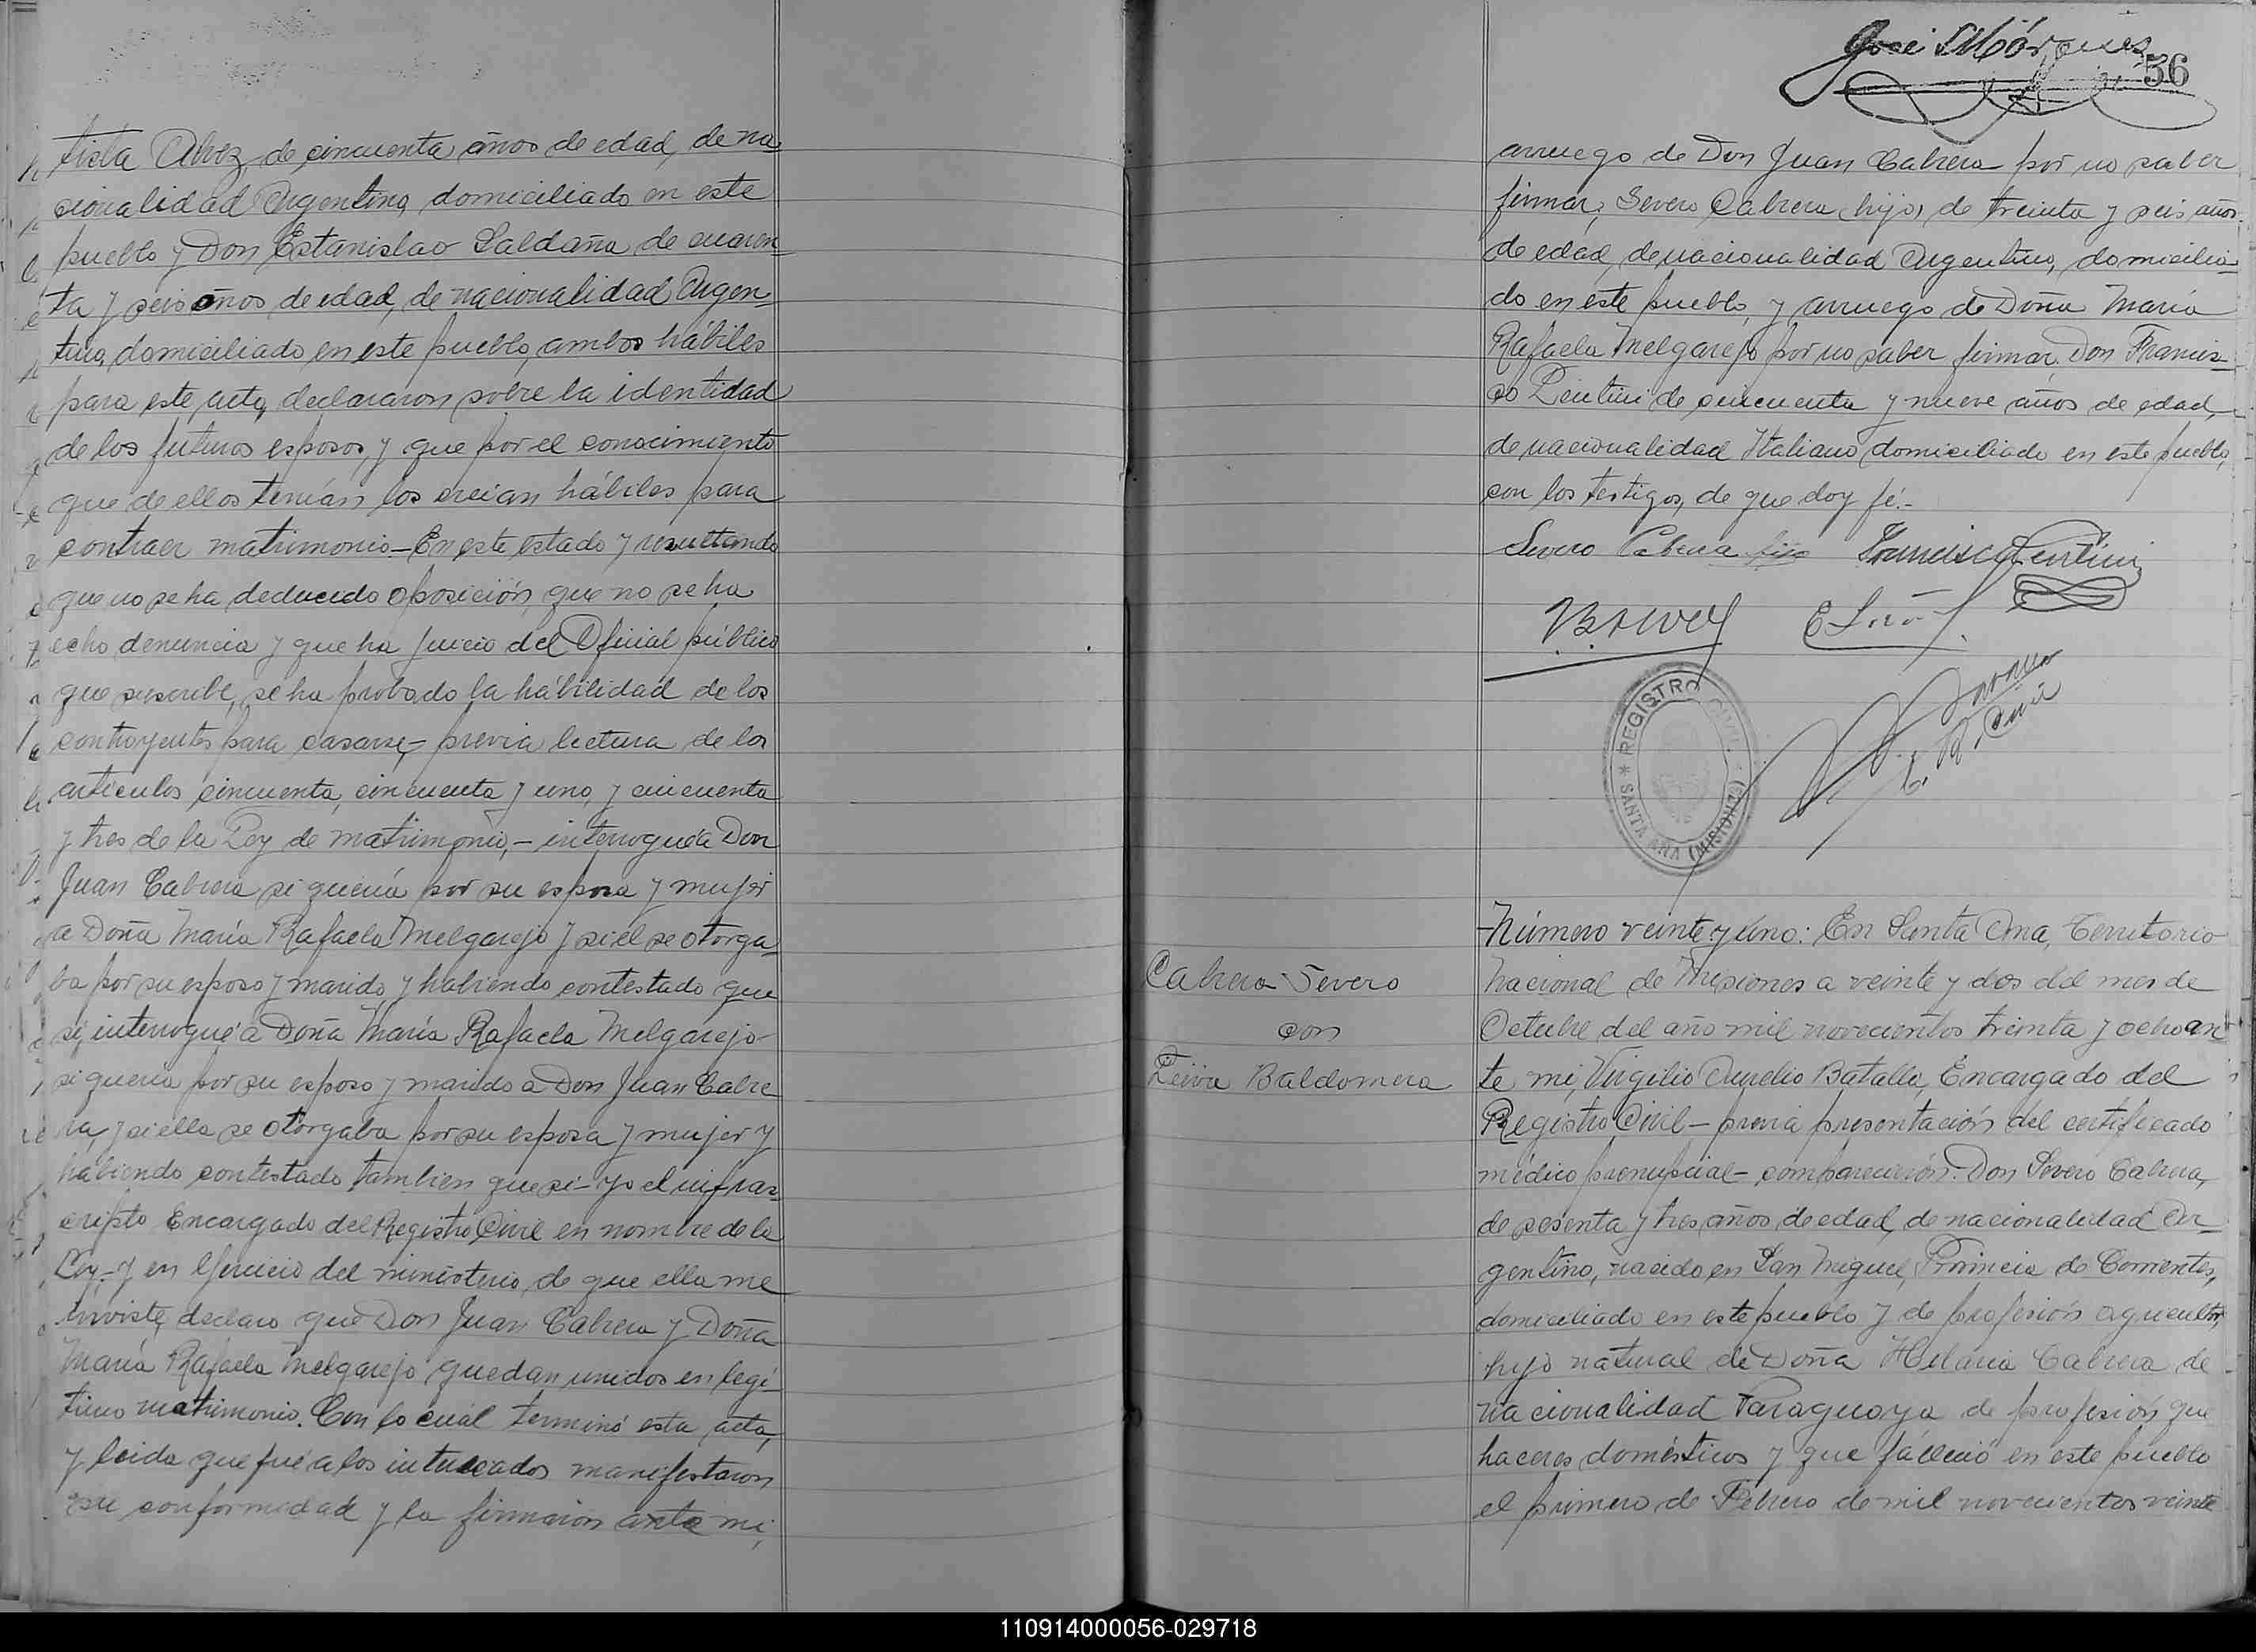 tista Alvez, de cincuenta años de edad, de na
cionalidad Argentino, domiciliado en este
pueblo y Don Estanislao Saldaña de cuaren-
ta y seis años de edad, de nacionalidad Argen-
tino, domiciliado en este pueblo, ambos hábiles
para este acto, declararon sobre la identidad
de los futuros esposos, y que por el conocimiento
que de ellos tenían los creian hábiles para
contraer matrimonio.- En este estado y resultando
que no se ha deducido oposición, que no se ha
echo denuncia y que ha juicio del Oficial público
que suscribe, se ha probado la habilidad de los
contrayentes para casarse,- previa lectura de los
artículos cincuenta, cincuenta y uno, y cincuenta
y tres de la Ley de matrimonio,- interrogué a Don
Juan Cabrera si quería por su esposa y mujer
a Doña María Rafaela Melgarejo y si él se otorga-
ba por su esposo y marido, y habiendo contestado que
si, interrogué a Doña María Rafaela Melgarejo
si quería por su esposo y marido a Don Juan Cabre
ra, y si ella se otorgaba por su esposa y mujer y
habiendo contestado tambien que si- yo el infras-
cripto Encargado del Registro Civil en nombre de la
Ley- y en ejercicio del ministerio, de que ella me
inviste, declaro que Don Juan Cabrera y Doña
María Rafaela Melgarejo quedan unidos en legí-
timo matrimonio. Con lo cuál terminó esta acta,
y leida que fué a los interesados manifestaron
su conformidad y la firmaron ante mi,
José Márquez
56
arruego de Don Juan Cabrera por no saber
firmar, Severo Cabrera (hijo) de treinta y seis años
de edad, de nacionalidad Argentino, domicilia-
do en este pueblo, y arruego de Doña María
Rafaela Melgarejo por no saber firmar, Don Francis-
co Lentini de cincuenta y nueve años de edad,
de nacionalidad Italiano domiciliado en este pueblo,
con los testigos, de que doy fé.-
Severo Cabrera hijo Francisco Lentini
REGISTRO CIVIL
SANTA ANA (MISIONES)
E. R. Civil
Número veinte y uno: En Santa Ana, Territorio
Cabrera Severo
con
Leiva Baldomera
Nacional de Misiones a veinte y dos del mes de
Octubre del año mil novecientos treinta y ocho an
te mi, Virgilio Aurelio Batalla, Encargado del
Registro Civil - previa presentación del certificado
médico prenupcial - comparecieron: Don Severo Cabrera,
de sesenta y tres años de edad, de nacionalidad Ar-
gentino, nacido en San Miguel, Provincia de Corrientes,
domiciliado en este pueblo y de profesión agricultor,
hijo natural de Doña Hilaria Cabrera de
nacionalidad Paraguaya de profesión que
haceres domésticos y que falleció en este pueblo
el primero de Febrero de mil novecientos veinte
110914000056-029718